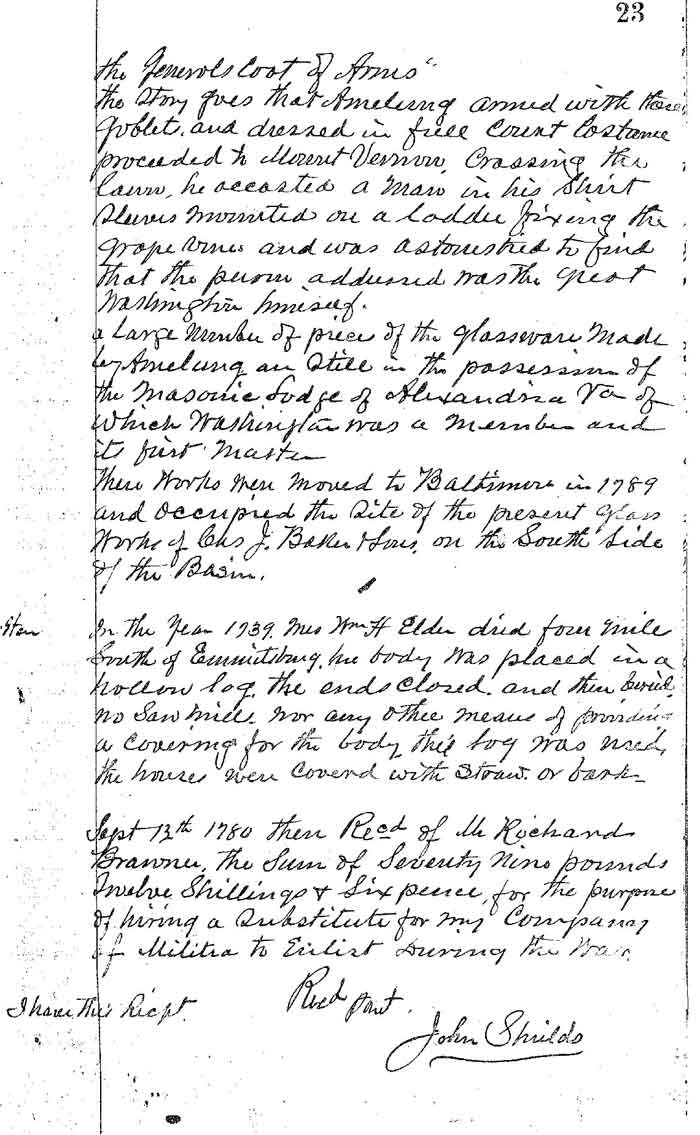 23
the Generals Coat of Arms"
the story goes that Amelung armed with these
goblets, and dressed in full Court Costume
proceeded to Mount Vernon, Crossing the
lawn, he accosted a man in his Shirt
Sleeves mounted on a ladder fixing the
grape vines and was astonished to find
that the person addressed was the great
Washington himself.
a large number of pieces of the glassware made
by Amelung are still in the possession of
the Masonic Lodge of Alexandria Va of
which Washington was a member and
its first Master
These Works were moved to Baltimore in 1789
and occupied the site of the present Glass
Works of Chs J. Baker & Sons, on the South Side
of the Basin.
In the Year 1739, Mrs Wm H Elder died four mile
South of Emmitsburg, her body was placed in a
hollow log, the ends closed. and then buried,
no Saw Mills, nor any other means of providing
a covering for the body, this log was used,
the houses were covered with Straw. or bark
Sept 13th 1780 then Recd of Mr Richard
Brawner, the Sum of Seventy Nine pounds
Twelve Shillings & Six pence, for the purpose
of hiring a Substitute for my Company
of Militia to Enlist During the War.
Recd
I have this Reciept.
John Shields